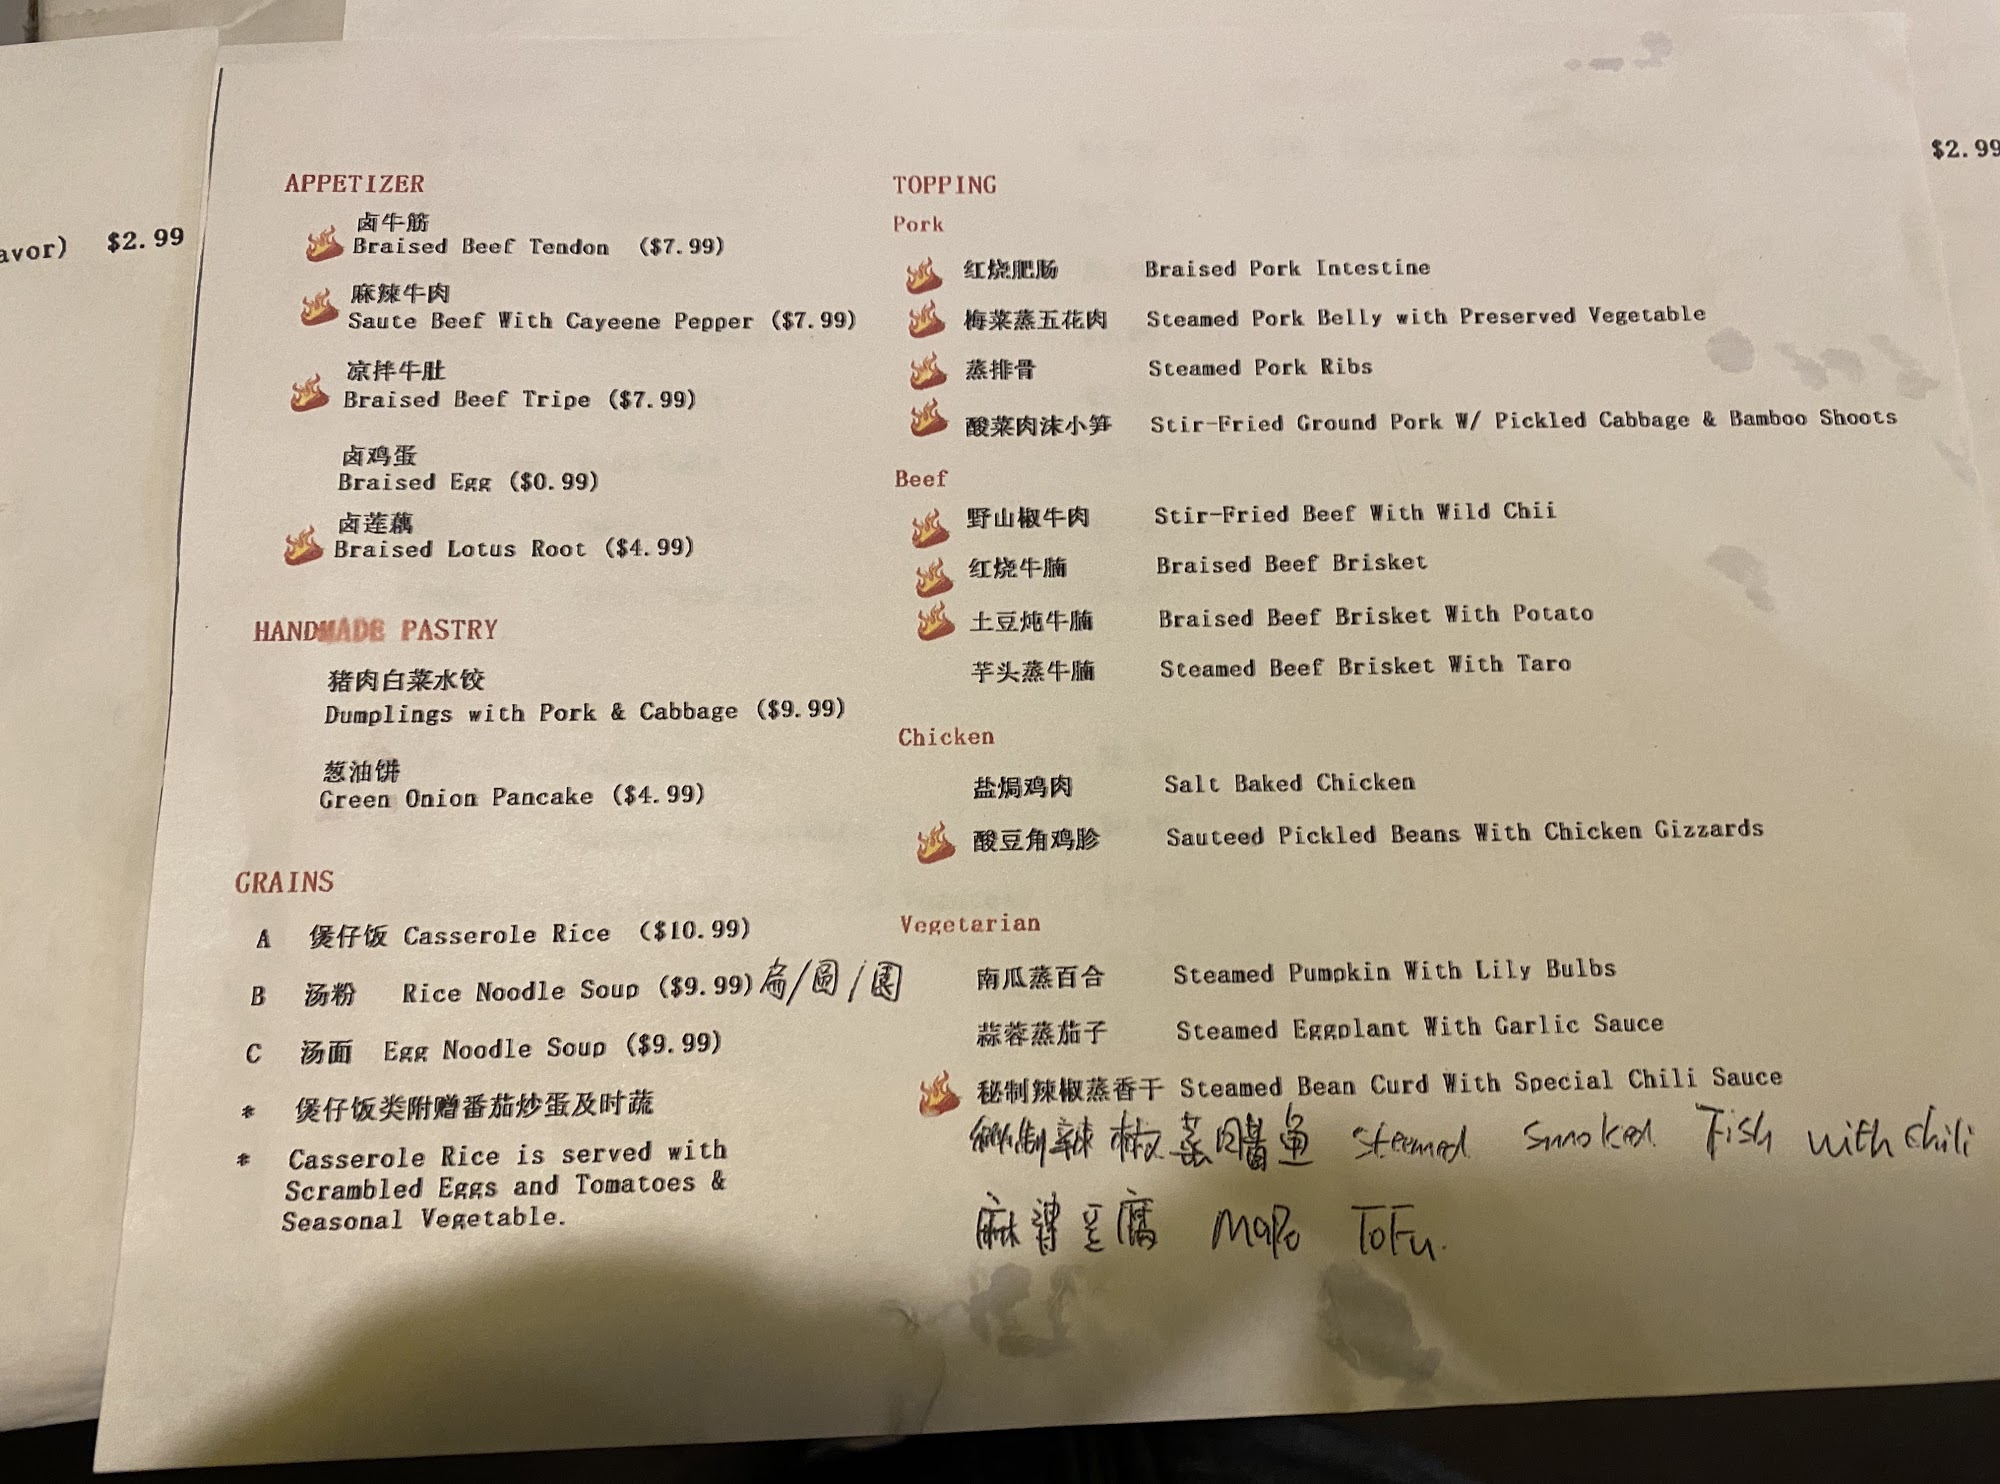 avor) $2.99
$2.99
APPETIZER
卤牛筋
Braised Beef Tendon ($7.99)
麻辣牛肉
Saute Beef With Cayeene Pepper ($7.99)
凉拌牛肚
Braised Beef Tripe ($7.99)
卤鸡蛋
Braised Egg ($0.99)
卤莲藕
Braised Lotus Root ($4.99)
HANDMADE PASTRY
猪肉白菜水饺
Dumplings with Pork & Cabbage ($9.99)
葱油饼
Green Onion Pancake ($4.99)
GRAINS
A 煲仔饭 Casserole Rice ($10.99)
B 汤粉 Rice Noodle Soup ($9.99) 扁/圆/
C 汤面 Egg Noodle Soup ($9.99)
* 煲仔饭类附赠番茄炒蛋及时蔬
* Casserole Rice is served with
Scrambled Eggs and Tomatoes &
Seasonal Vegetable.
TOPPING
Pork
红烧肥肠 Braised Pork Intestine
梅菜蒸五花肉 Steamed Pork Belly with Preserved Vegetable
蒸排骨 Steamed Pork Ribs
酸菜肉沫小笋 Stir-Fried Ground Pork W/ Pickled Cabbage & Bamboo Shoots
Beef
野山椒牛肉 Stir-Fried Beef With Wild Chii
红烧牛腩 Braised Beef Brisket
土豆炖牛腩 Braised Beef Brisket With Potato
芋头蒸牛腩 Steamed Beef Brisket With Taro
Chicken
盐焗鸡肉 Salt Baked Chicken
酸豆角鸡胗 Sauteed Pickled Beans With Chicken Gizzards
Vegetarian
南瓜蒸百合 Steamed Pumpkin With Lily Bulbs
蒜蓉蒸茄子 Steamed Eggplant With Garlic Sauce
秘制辣椒蒸香干 Steamed Bean Curd With Special Chili Sauce
制辣椒蒸鱼 Steamed Smoked Fish with chili
麻婆豆腐 MaPo ToFu.